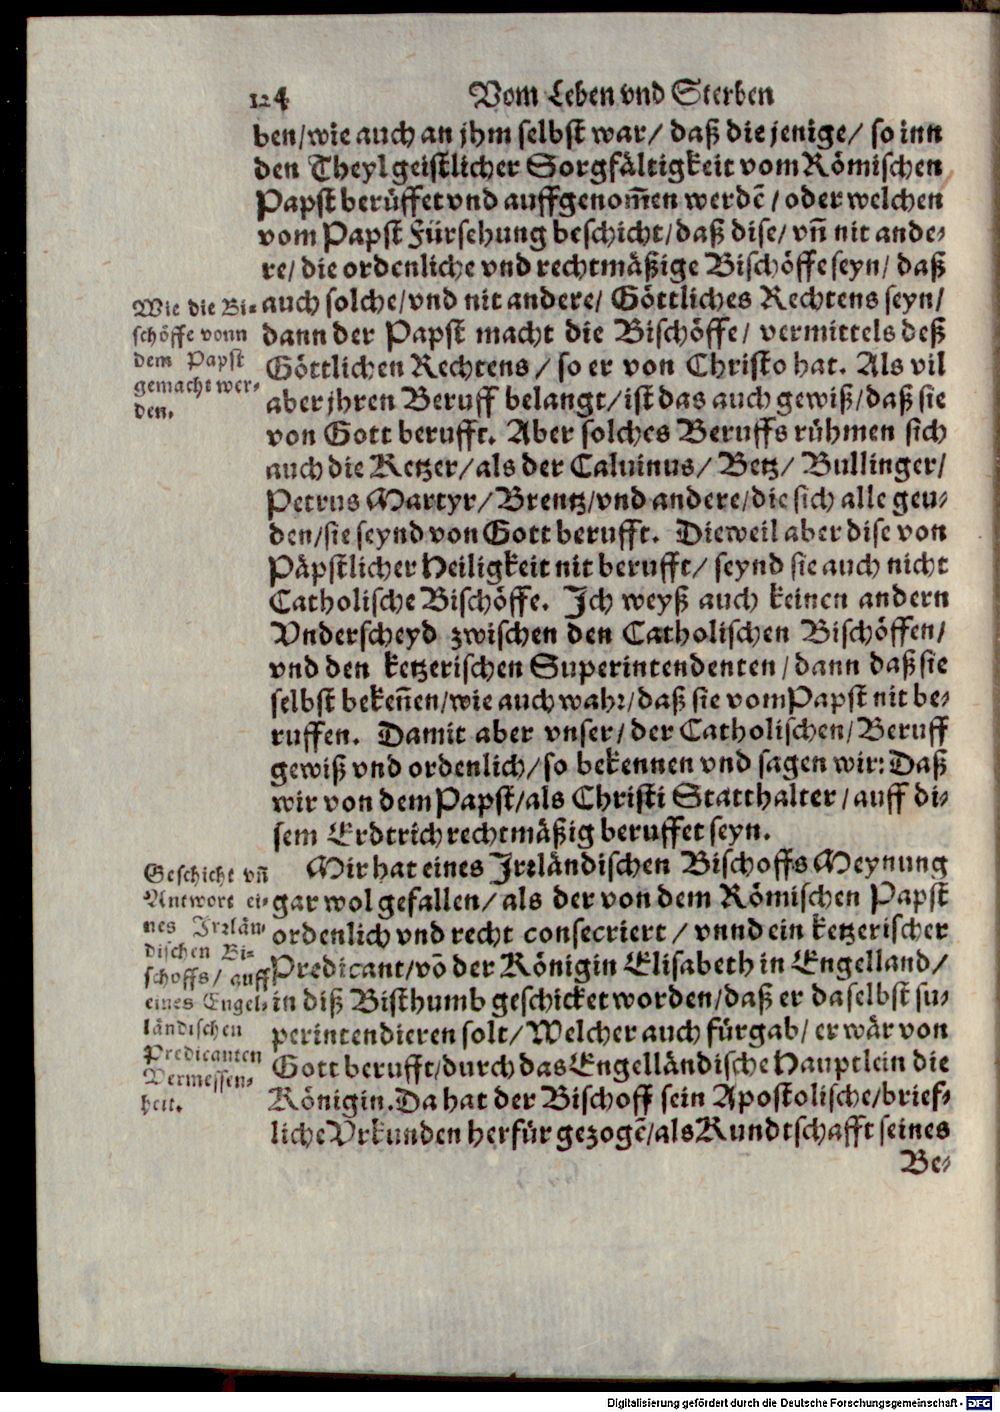 124 Vom Leben vnd Sterben
ben/wie auch an jhm selbst war/ daß die jenige/ so inn
den Theyl geistlicher Sorgfältigkeit vom Römischen
Papst berüffet vnd auffgenom̃en werdẽ/ oder welchen
vom Papst Fürsehung beschicht/daß dise/ vñ nit ande-
re/ die ordenliche vnd rechtmäßige Bischöffe seyn/ daß
auch solche/vnd nit andere/ Göttliches Rechtens seyn/
dann der Papst macht die Bischöffe/ vermittels deß
Göttlichen Rechtens/ so er von Christo hat. Als vil
aber jhren Beruff belangt/ist das auch gewiß/daß sie
von Gott berufft. Aber solches Beruffs rühmen sich
auch die Ketzer/als der Caluinus/ Betz/ Bullinger/
Petrus Martyr/ Brentz/vnd andere/die sich alle geu-
den/sie seynd von Gott berufft. Dieweil aber dise von
Päpstlicher Heiligkeit nit berufft/ seynd sie auch nicht
Catholische Bischöffe. Ich weyß auch keinen andern
Vnderscheyd zwischen den Catholischen Bischöffen/
vnd den ketzerischen Superintendenten/dann daß sie
selbst bekeñen/wie auch wahr/daß sie vom Papst nit be-
ruffen. Damit aber vnser/ der Catholischen/ Beruff
gewiß vnd ordenlich/so bekennen vnd sagen wir: Daß
wir von dem Papst/als Christi Statthalter/auff di-
sem Erdtrich rechtmäßig beruffet seyn.
Mir hat eines Irrländischen Bischoffs Meynung
gar wol gefallen/ als der von dem Römischen Papst
ordenlich vnd recht consecriert/ vnnd ein ketzerischer
Predicant/võ der Königin Elisabeth in Engelland/
in diß Bisthumb geschicket worden/daß er daselbst su-
perintendieren solt/Welcher auch fürgab/ er wär von
Gott berufft/durch das Engelländische Hauptlein die
Königin. Da hat der Bischoff sein Apostolische/brief-
liche Vrkunden herfür gezogẽ/als Kundtschafft seines
Be-
Wie die Bi-
schöffe vonn
dem Papst
gemacht wer-
den.
Geschicht vñ
Antwort ei-
nes Irrlän-
dischen Bi-
schoffs/ auff
eines Engel-
ländischen
Predicanten
Vermessen-
heit.
Digitalisierung gefördert durch die Deutsche Forschungsgemeinschaft - DFG